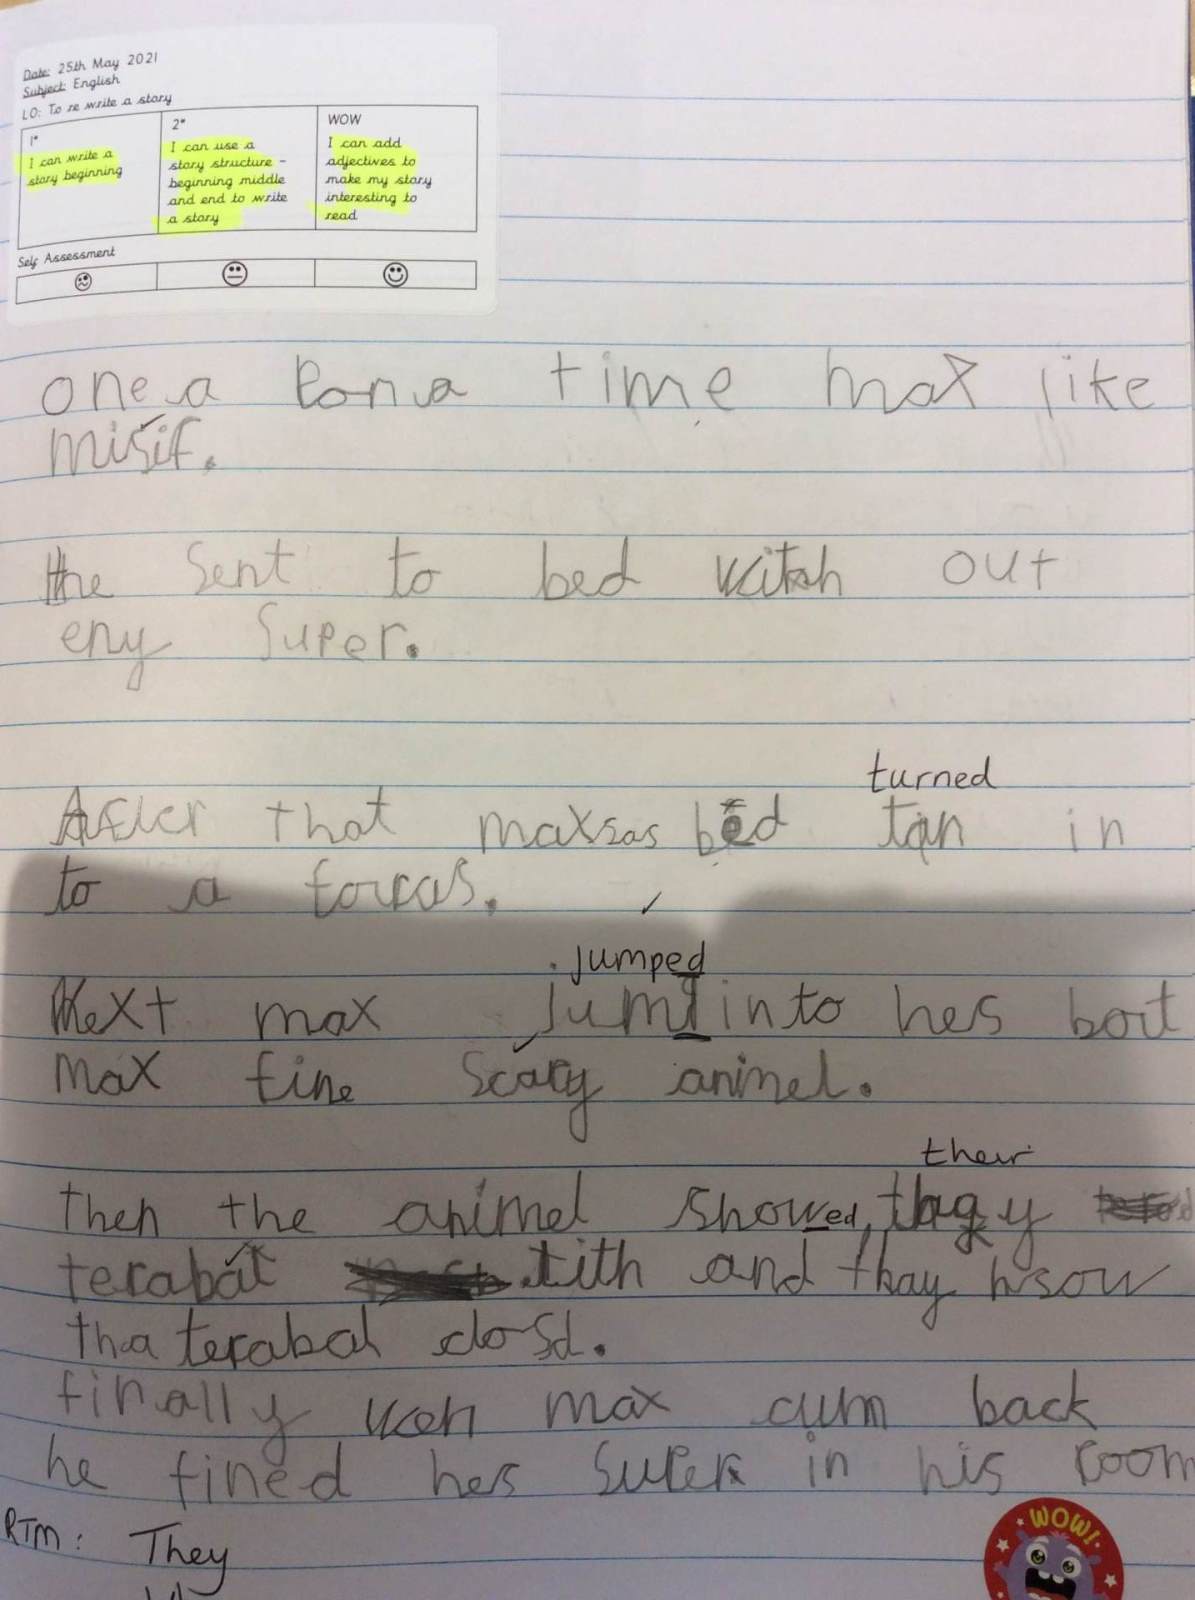 Date: 25th May 2021
Subject: English
LO: To re write a story
1*
I can write a
story beginning
2*
I can use a
story structure –
beginning middle
and end to write
a story
WOW
I can add
adjectives to
make my story
interesting to
read
Self Assessment
one a pon a time max like
misif.
He sent to bed witah out
eny super.
turned
After that maxsas bed tan in
to a forcas.
jumped
Next max jumt into hes bout
max fine scary animel.
their
then the animel showed thay
terabal tith and thay hsow
tha terabal closd.
finally wen max cum back
he fined hes super in his room
RTM: They
WOW!